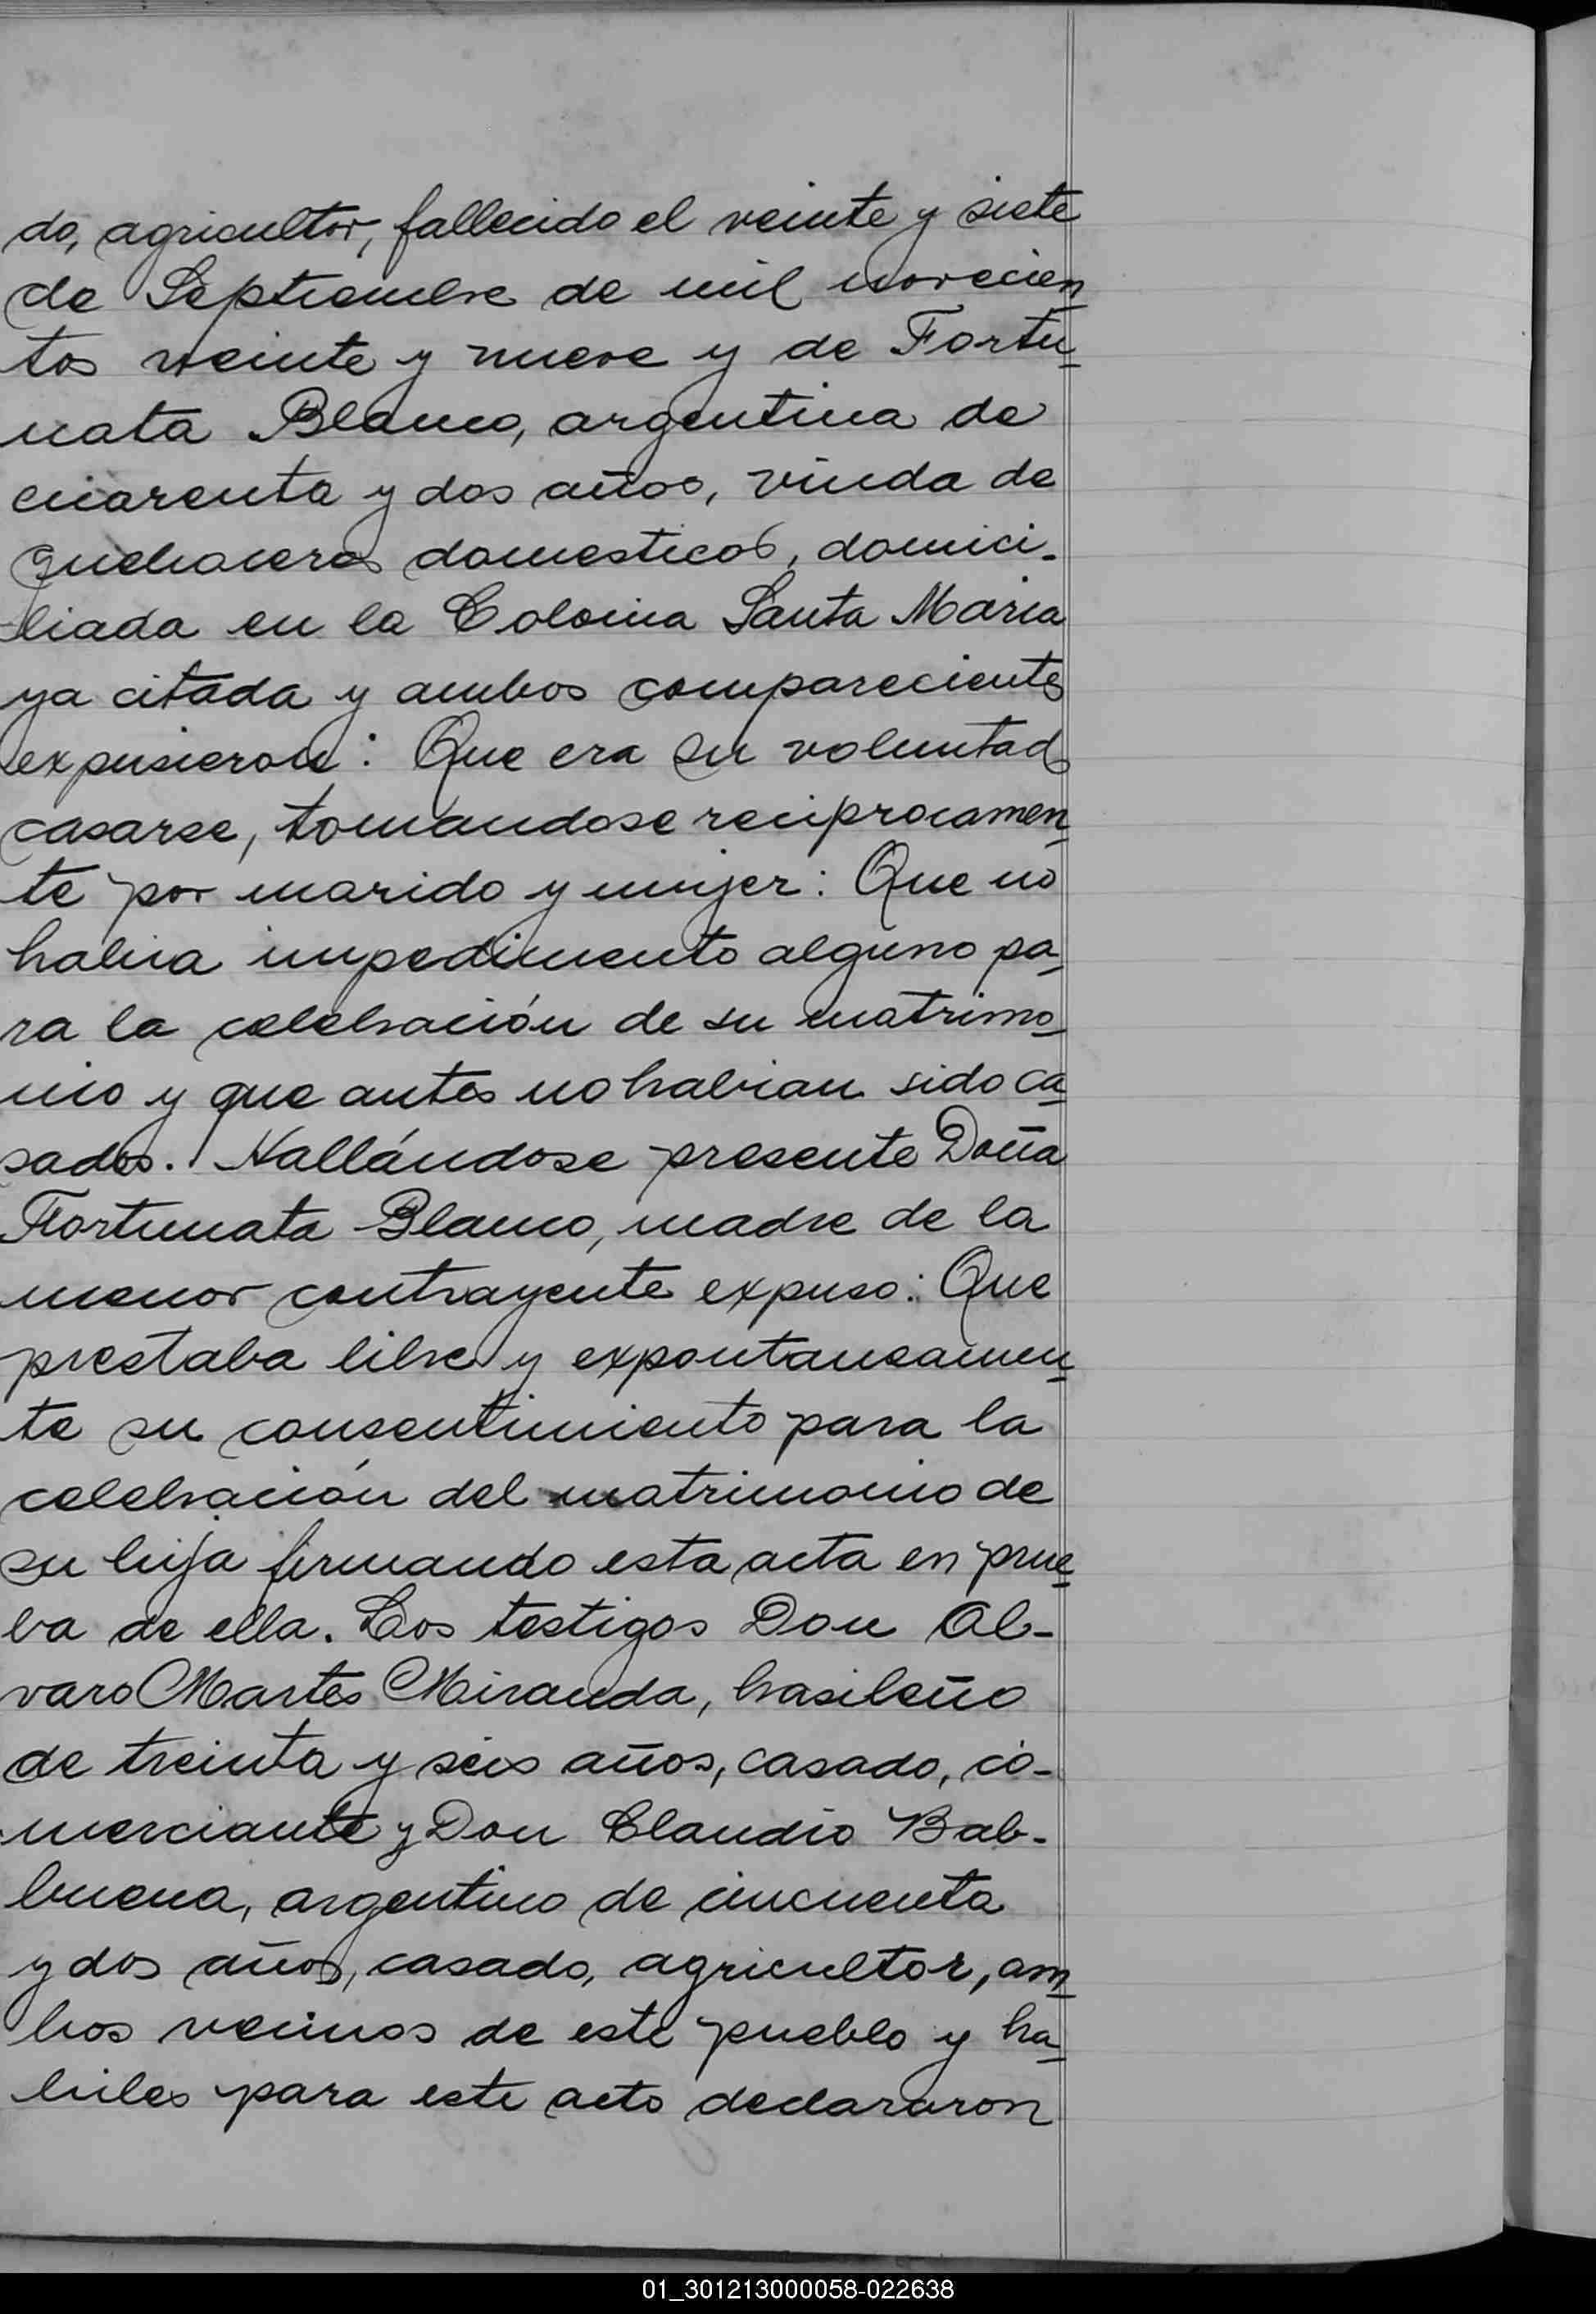 do, agricultor, fallecido el veinte y siete
de Septiembre de mil novecien
tos veinte y nueve y de Fortu
nata Blanco, argentina de
cuarenta y dos años, viuda de
quehaceres domesticos, domici-
liada en la Colonia Santa Maria
ya citada y ambos comparecientes
expusieron: Que era su voluntad
casarse, tomandose reciprocamen
te por marido y mujer: Que no
habia impedimento alguno pa
ra la celebración de su matrimo
nio y que antes no habian sido ca
sados. Hallándose presente Doña
Fortunata Blanco, madre de la
menor contrayente expuso: Que
prestaba libre y expontaneamen
te su consentimiento para la
celebración del matrimonio de
su hija firmando esta acta en prue
ba de ella. Los testigos Don Al-
varo Martes Miranda, brasileño
de treinta y seis años, casado, co-
merciante y Don Claudio Bal-
buena, argentino de cincuenta
y dos años, casado, agricultor, am
bos vecinos de este pueblo y ha
biles para este acto declararon
01_301213000058-022638